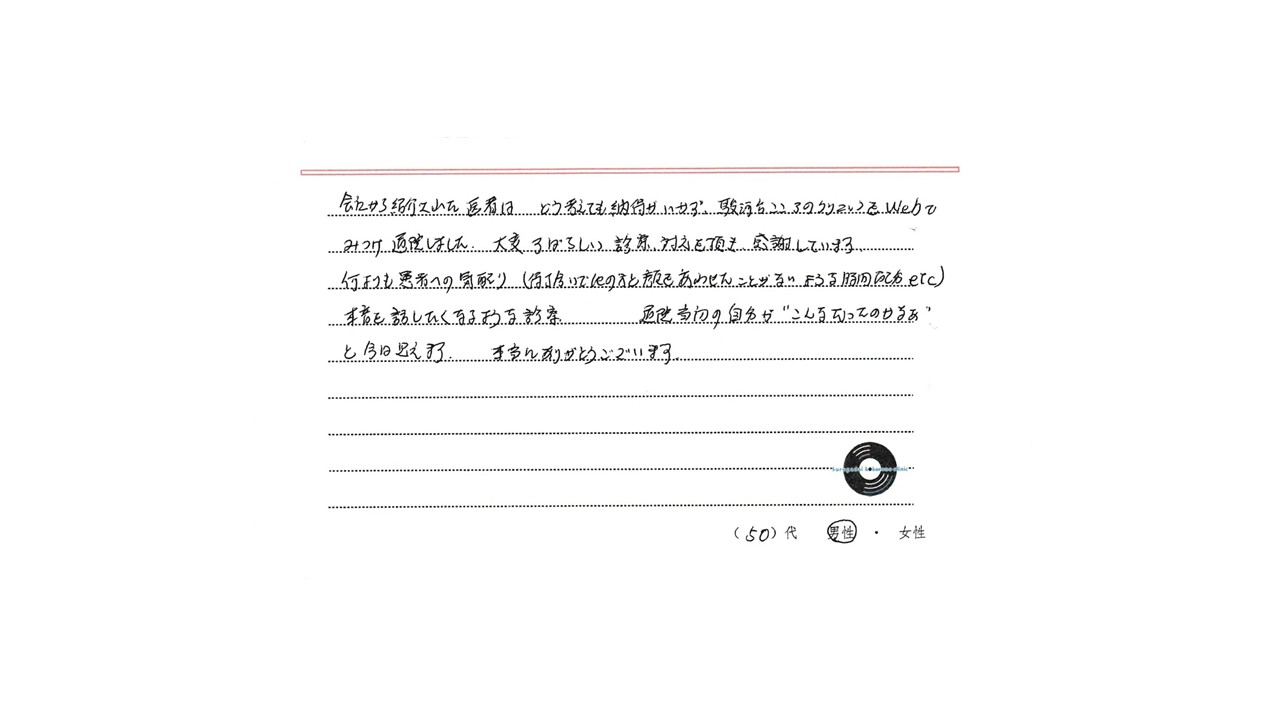 会社から紹介された医者は どう考えても納得がいかず、駿河台こころのクリニックをWebで
みつけ通院しました。大変すばらしい診察、対応を頂き、感謝しています。
何よりも患者への気配り(待合いで他の方と顔をあわせることがない ような時間配分etc)
本音を話したくなるような診察 通院当初の自分が"こんなだったのかなぁ"
と今は思えます。 本当にありがとうございます。
(50)代 男性 ・ 女性